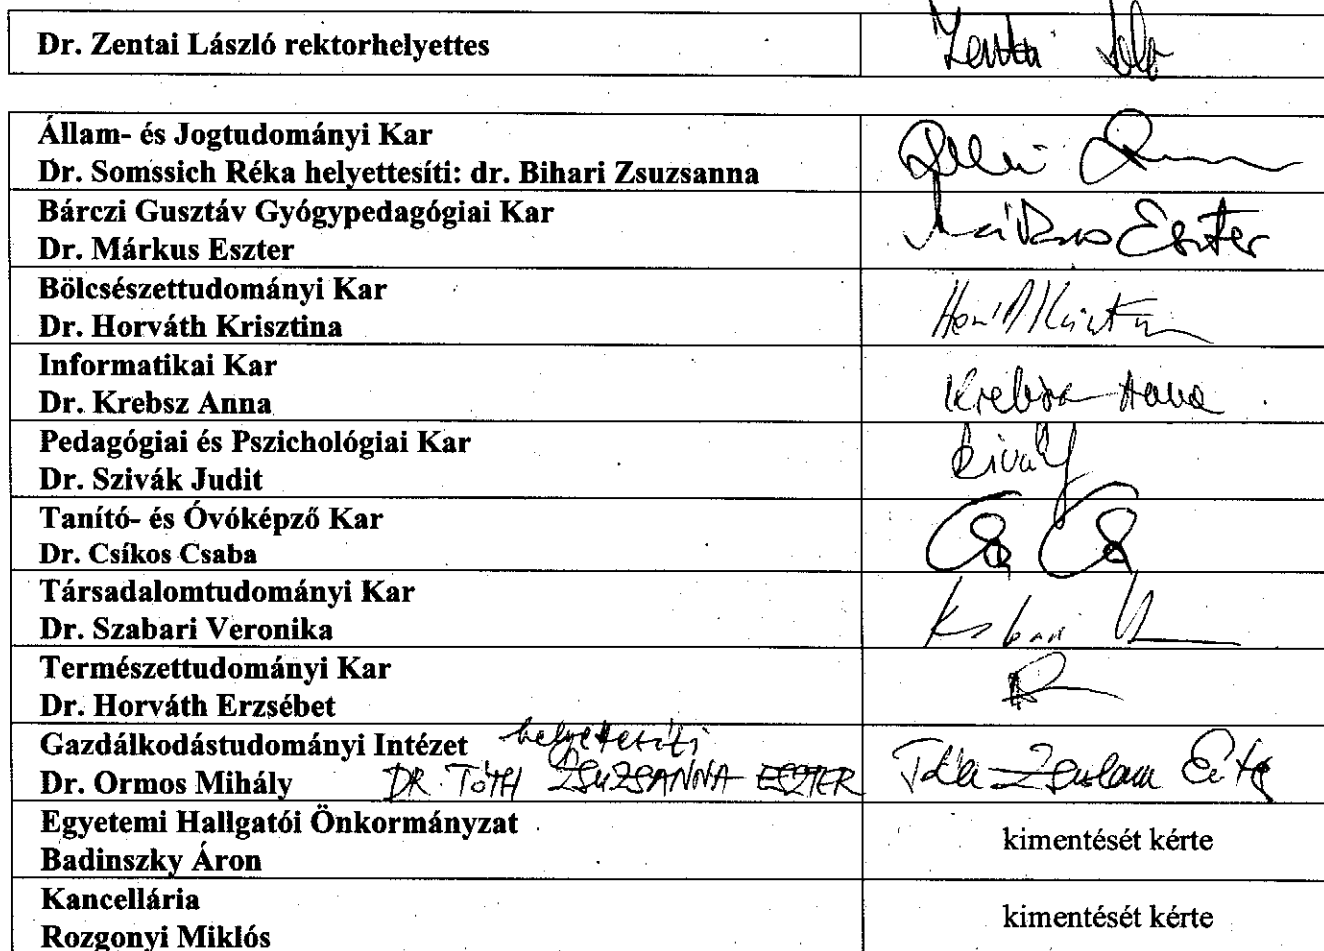 Dr. Zentai László rektorhelyettes
Állam- és Jogtudományi Kar
Dr. Somssich Réka helyettesíti: dr. Bihari Zsuzsanna
Bárczi Gusztáv Gyógypedagógiai Kar
Dr. Márkus Eszter
Márkus Eszter
Bölcsészettudományi Kar
Dr. Horváth Krisztina
Informatikai Kar
Dr. Krebsz Anna
Krebsz Anna
Pedagógiai és Pszichológiai Kar
Dr. Szivák Judit
Tanító- és Óvóképző Kar
Dr. Csíkos Csaba
Társadalomtudományi Kar
Dr. Szabari Veronika
Természettudományi Kar
Dr. Horváth Erzsébet
Gazdálkodástudományi Intézet helyettesíti
Dr. Ormos Mihály DR. TÓTH ZSUZSANNA ESZTER
Egyetemi Hallgatói Önkormányzat
Badinszky Áron
kimentését kérte
Kancellária
Rozgonyi Miklós
kimentését kérte